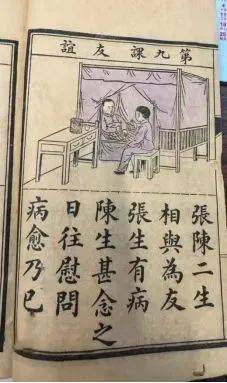 第九課 友誼
張陳二生
相與為友
張生有病
陳生甚念之
日往慰問
病愈乃已